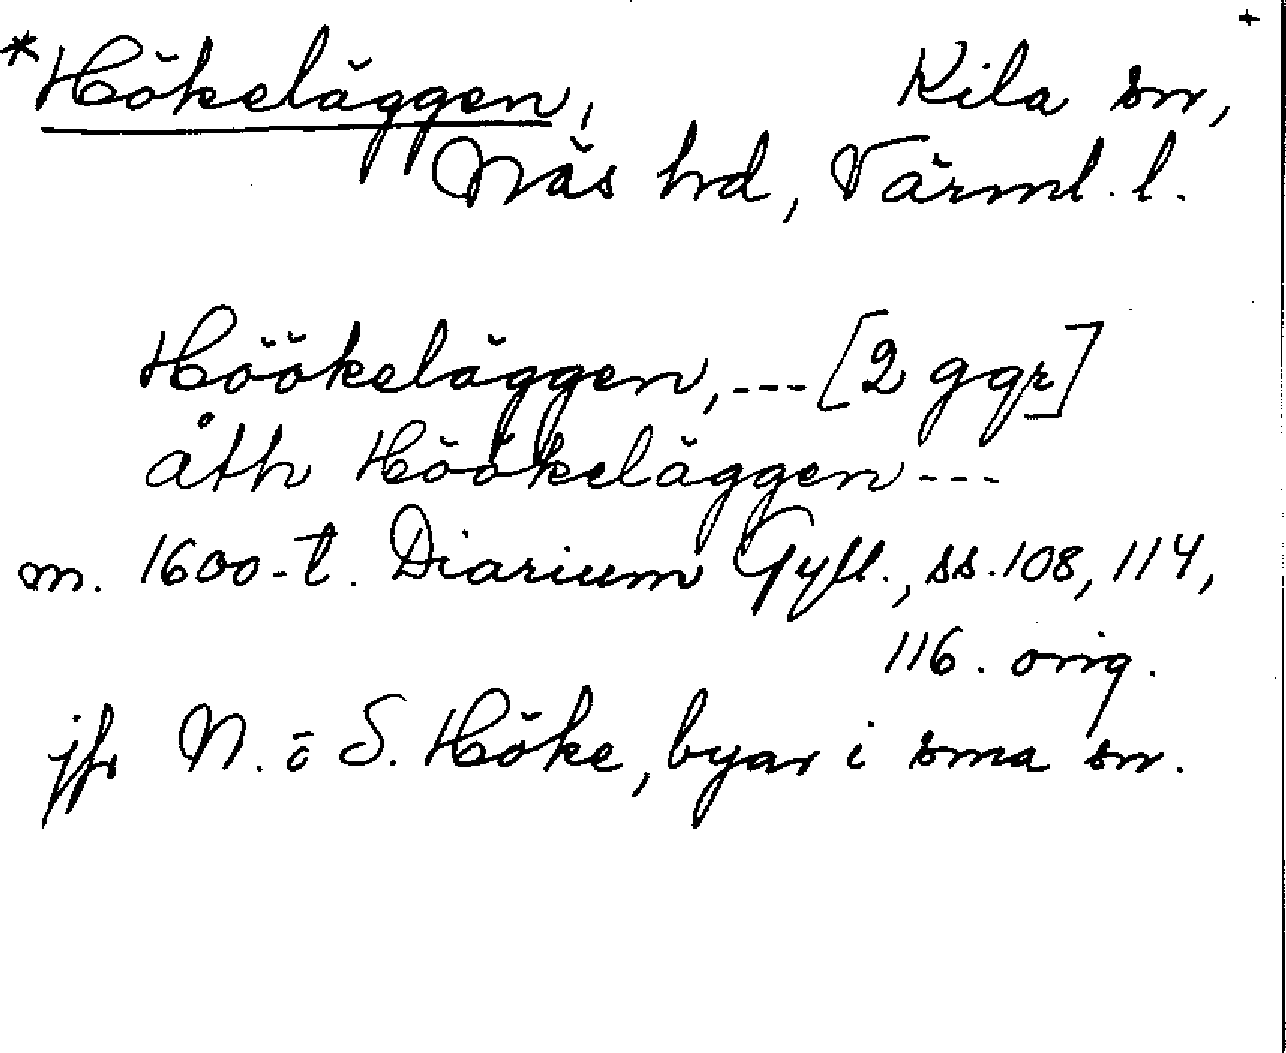 +
*Hökeläggen, Kila sn,
Näs hd, Värml. l.
Höökeläggen, --- [2 ggr]
åth Höökeläggen ---
m. 1600-t. Diarium Gyll., ss. 108, 114,
116. orig.
jfr N. o S. Höke, byar i sma sn.